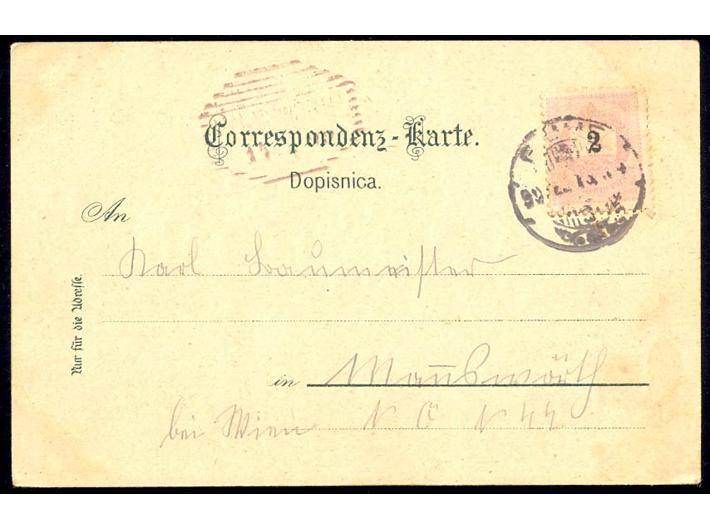 Correspondenz-Karte.
Dopisnica.
2
An
Karl Baumeister
in Mannswörth
bei Wien N Ö N 44
Nur für die Adresse.